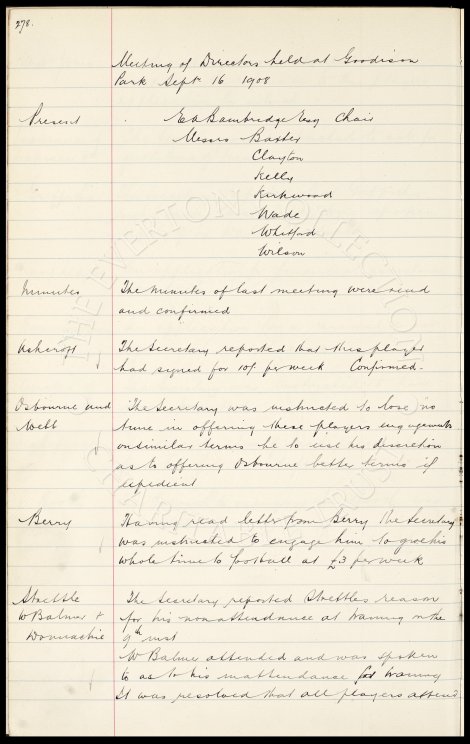 278.
Meeting of Directors held at Goodison
Park Sept 16 1908
Present
E A Bainbridge Esq Chair
Messrs Baxter
Clayton
Kelly
Kirkwood
Wade
Whitford
Wilson
Minutes
The minutes of last meeting were read
and confirmed
Ashcroft
The Secretary reported that this player
had signed for 10/ per week Confirmed.
Osbourne and
Webb
The Secretary was instructed to lose no
time in offering these players engagements
on similar terms he to use his discretion
as to offering Osbourne better terms if
expedient
Berry
Having read letter from Berry the Secretary
was instructed to engage him to give his
whole time to football at £3 per week
Strettle
W Balmer &
Donnachie
The Secretary reported Strettles reason
for his non attendance at training on the
9th inst
W Balmer attended and was spoken
to as to his inattendance for training
It was resolved that all players attend
THE EVERTON COLLECTION
CHARITABLE TRUST